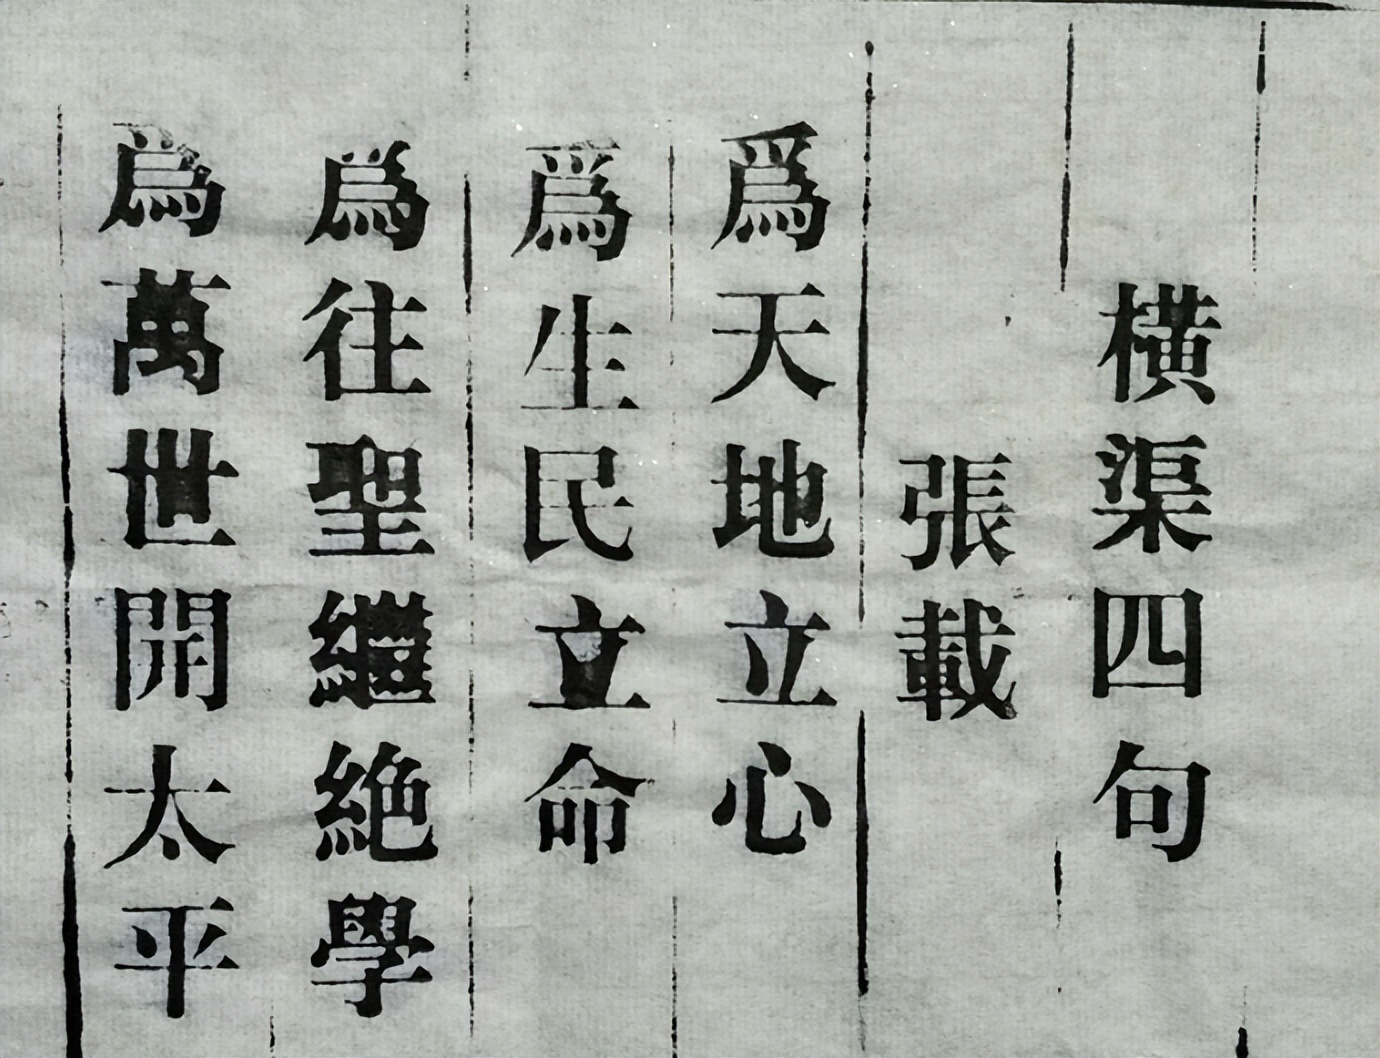 橫渠四句
張載
爲天地立心
爲生民立命
爲往聖繼絕學
爲萬世開太平